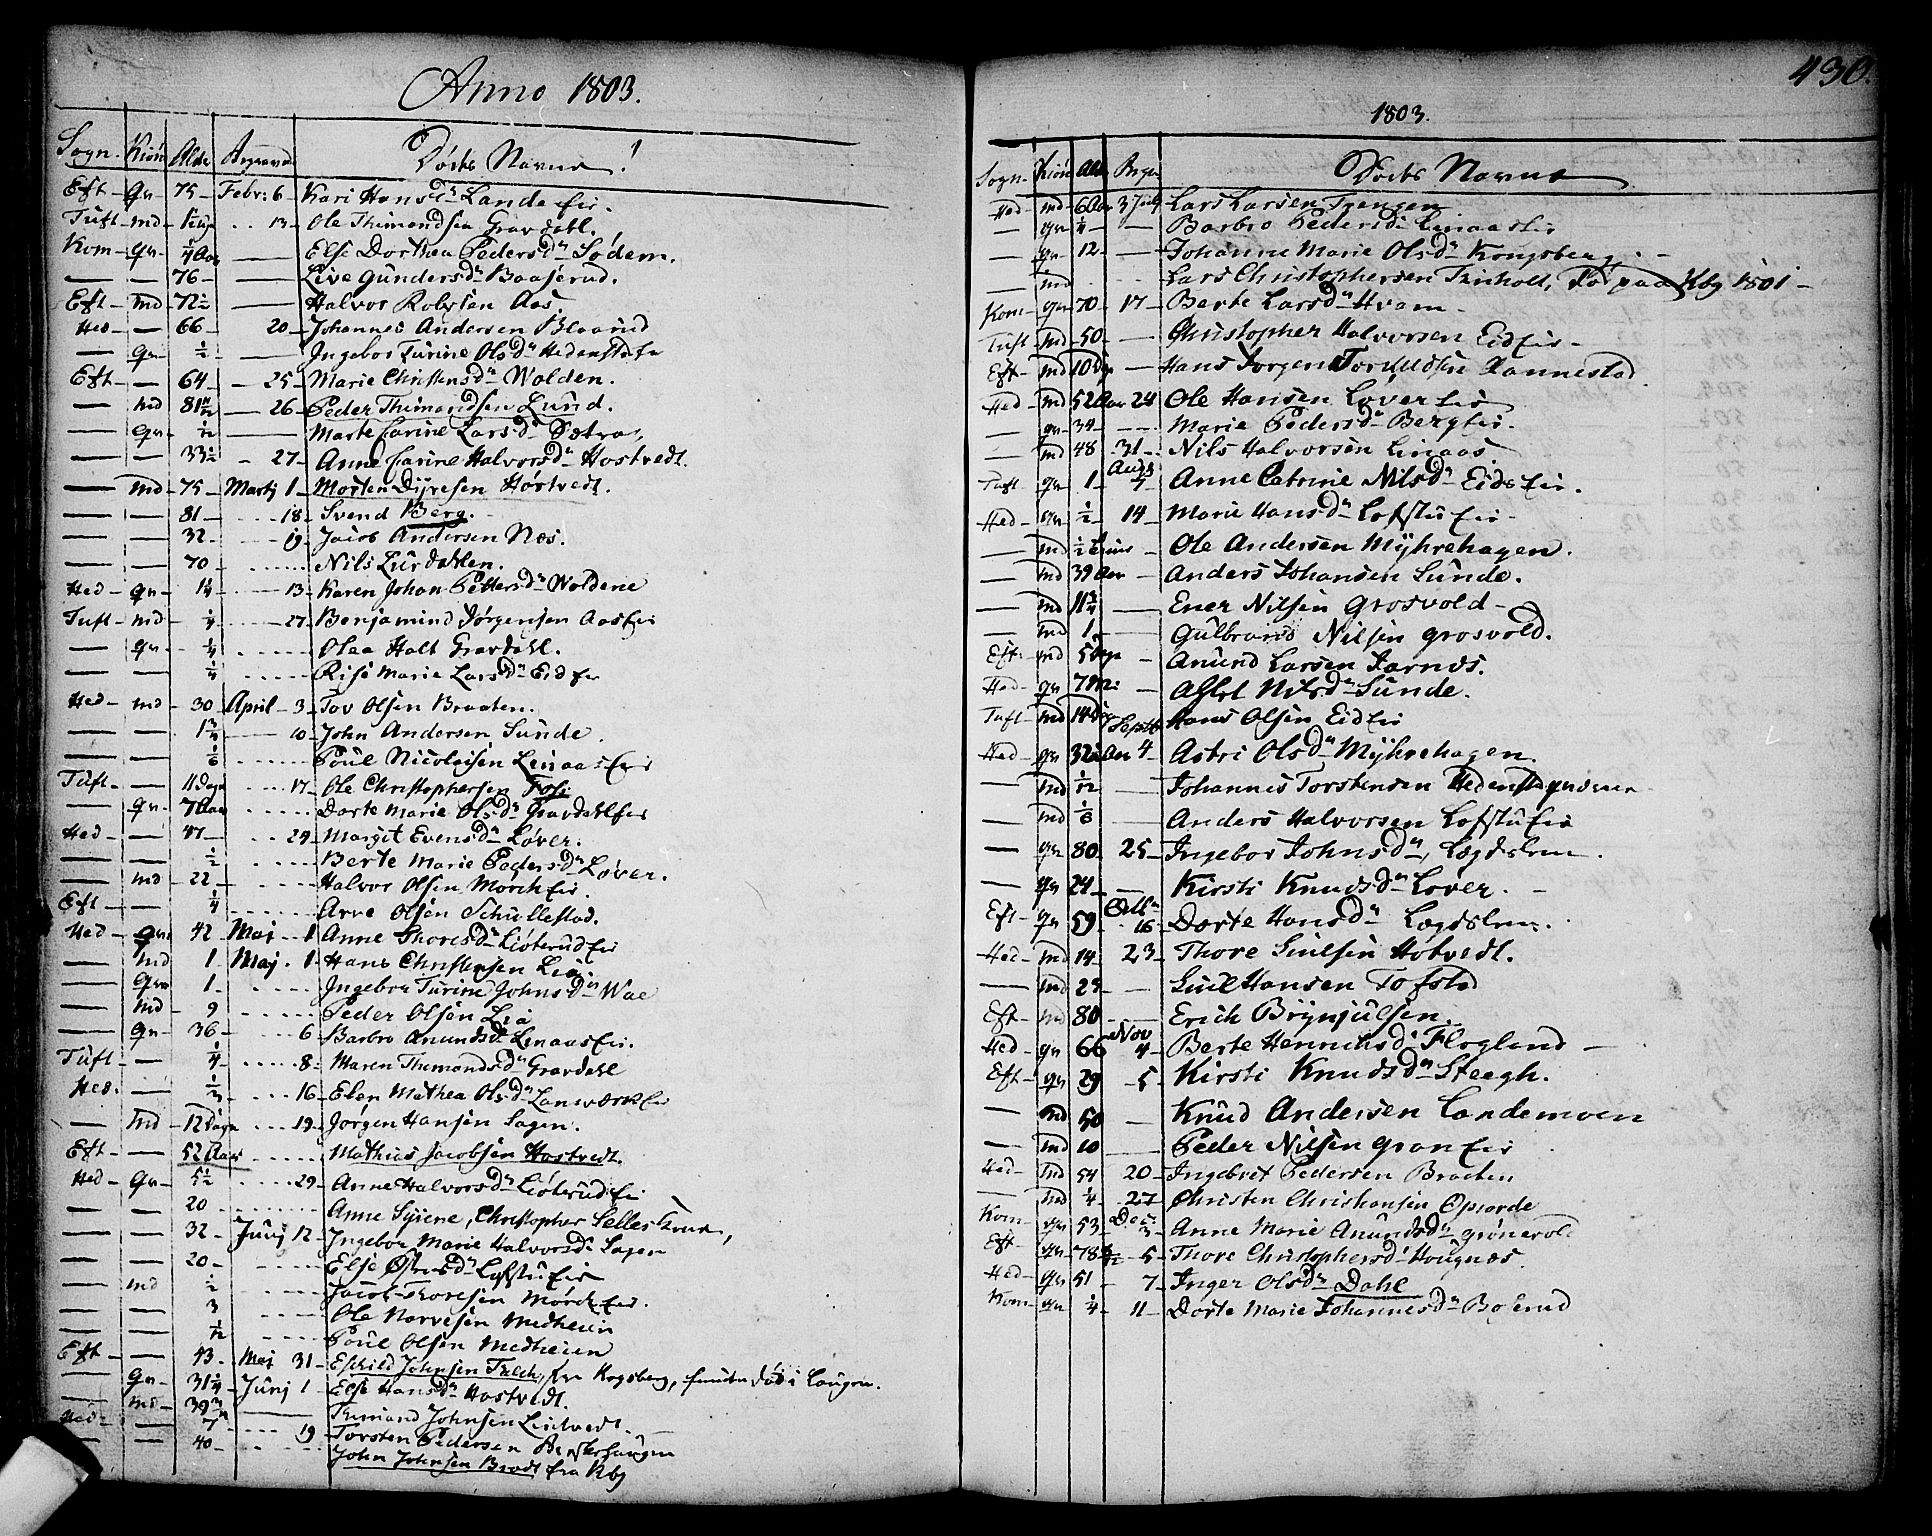 Anno 1803.
Sogn. Kiön Alder Begravne Dödes Navne
Eft - qv - 75 - Febr: 6 - Kari Hansd Lande Eie.
Tuft - md - - 13 - Ole Thimandsen Gravdahl.
Kom - qv - 1/4 Aar - Else Dorthea Pedersd Södem.
— — 76 - — Live Gundersd Baaserud.
Eft - md - 72 1/2 — Halvor Aas.
Hed - — 66 - 20 - Johannes Andersen Blaarud
— qv - 1/2 — Ingebor Turine Olsd Hedenstad
Eft - — 64 - - 25 - Marie Christensd Wolden.
— md 81 11/12 — 26 - Peder Thimandsen Lund.
— qv - 1/12 — Marte Carine Larsd Sætra,
— — 33 1/2 - 27 - Anne Carine Halvorsd Hostvedt.
— md - 75 - Martj 1 - Morten Dyresen Hostvedt.
— — 81 - 18 - Svend Berg.
— — 32 - 19 - Jacob Andersen Næs.
— — 70 - Nils Lurdahlen.
Hed - qv - 1 1/4 - 13 - Karen Johan Pettersd Woldene
Tuft - md - 1/4 - 27 - Benjamind Jörgensen Aas Eie
— qv - 1/4 - Olea Halt Gravdahl.
— — 1/4 Rise Marie Larsd Eid Eie
Hed - md - 30 April - 3 - Tov Olsen Braaten.
— — 1 3/4 - 10 - John Andersen Sunde.
— — 1/6 Poul Nicolaisen Linaas Eie
Tuft - — 11 Dage 17 - Ole Christophersen Foss
— qv - 7 Aar Dorte Marie Olsd Gravdahl Eie
Hed - — 47 - 24 - Margit Evensd Löver.
— — 1/2 Berte Marie Pedersd Löver.
— md - 22 - Halvor Olsen Mörch Eie.
Eft - — 1/4 Arve Olsen Schullestad.
Hed - qv 42 - Maj - 1 Anne Thoresd Liöterud Eie
— md 1 - Maj. 1 - Hans Christensen Lia.
— qv 1 - Ingebor Turine Johnsd Wae
— md - 9 Peder Olsen Lia
— qv - 36 - 6 - Barbro Anundsd Linaas Eie.
Tuft - — 1/4 8 - Maren Thimandsd Gravdahl
Hed. - — 1/3 16 - Elen Mathea Olsd Lanwærk Eie
— md - 12 Dage 19 - Jörgen Hansen Sagen.
Eft - — 52 Aar Mathias Jacobsen Hostvedt.
Hed - qv - 5 1/2 29 - Anne Halvorsd Liöterud Eie
— — 20 Anne Syrene, Christopher Selles Kone,
— — 32 - Junj 12 - Ingebor Marie Halvorsd Sagen
— — 20 - Else Olsd Lofstu Eie
— md 1/2 Jacob Thoresen Mörch Eie.
— — 3 Ole Narvesen Medheien
— — 1/12 Poul Olsen Medheien
Eft - — 43 - Maj 31 - Eskild Johnsen Falck, fra Kongsberg, funden död i Laugen.
— qv - 31 1/4 - Junj 1 - Else Hansd Hostvedt.
— md - 39 3/4 — Thimand Johnsen Lindvedt
Hed - — 7 19 - Torsten Pedersen
— — 40 - John Johnsen Bradt fra Kbg
430.
1803.
Sogn - Kiön Alder Begr Dödes Navne
Hed - md - 6 Aar 3 July Lars Larsen Trengen
— qv 1/4 — Barbro Pedersd Linaas Eie
— qv - 12 - — Johanne Marie Olsd Kongsberg.
— md Lars Christophersen Teinholt, Död paa Kbg 1801 -
Kom - qv - 70 - 17 - Berte Larsd Hvam -
Tuft - md - 50 - — Christopher Halvorsen Eid Eie -
Eft - md 10 Dge — Hans Jörgen Tordsen Kannestad
Hed - md 52 Aar 24 Ole Hansen Löver Eie
— qv - 34 - — Marie Pedersd Berg Eie.
— md 48 31 - Nils Halvorsen Linaas
Tuft - qv - 1 - Aug 7 Anne Catrine Nilsd Eids Eie.
Hed - qv - 1/2 - 14 - Marie Hansd Lofstu Eie -
— md - 1/2 - Ole Andersen Myhrehagen.
— md 39 Aar - Anders Johansen Sunde.
— md 11 3/4 — Ener Nilsen Grosvold -
— md 1 - — Gulbrand Nilsen Grosvold.
Eft - md 5 Dge - Anund Larsen Jarnæs.
Hed - qv 7 M: - Aslet Nilsd Sunde.
Tuft - md 14 Dge Septb Hans Olsen Eid Eie
Hed - qv 32 Aar 4 Astri Olsd Myhrehagen.
— md 1/12 — Johannes Torstensen Hedenstad
— md 1/6 — Anders Halvorsen Lofstu Eie
— qv 80. 25 - Ingebor Johnsd, Lægdslem.
— qv 24 - — Kirsti Knudsd Lover. -
Eft - qv - 59 - Octb 16 - Dorte Hansd Lægdslem.
Hed - md 14 - 23 - Thore Guulsen Hotvedt.
— md 25 - — Guul Hansen Tofstad
Eft - md 80 — Erich Brynjulsen.
Hed - qv 66 Nov 4 - Berte Henrichsd Flogland —
Eft - qv 29 - 5 - Kirsti Knudsd Steegh.
— md 50 — Knud Andersen Landemoen
— md 10 — Peder Nilsen Gran Eie
Hed - md 54 20 - Ingebret Pedersen Braaten
— md 1/4 27 Christen Christiansen Opsorde
Kom - qv - 53 - Dec: 3 - Anne Marie Anundsd Grönevold
Eft - qv - 78 5/12 - 5 - Thore Christophersd Hougnæs.
Hed - qv 51 - 7 Inger Olsd Dahl
Kom - qv 1/4 - 11 - Dorte Marie Johannesd Boserud